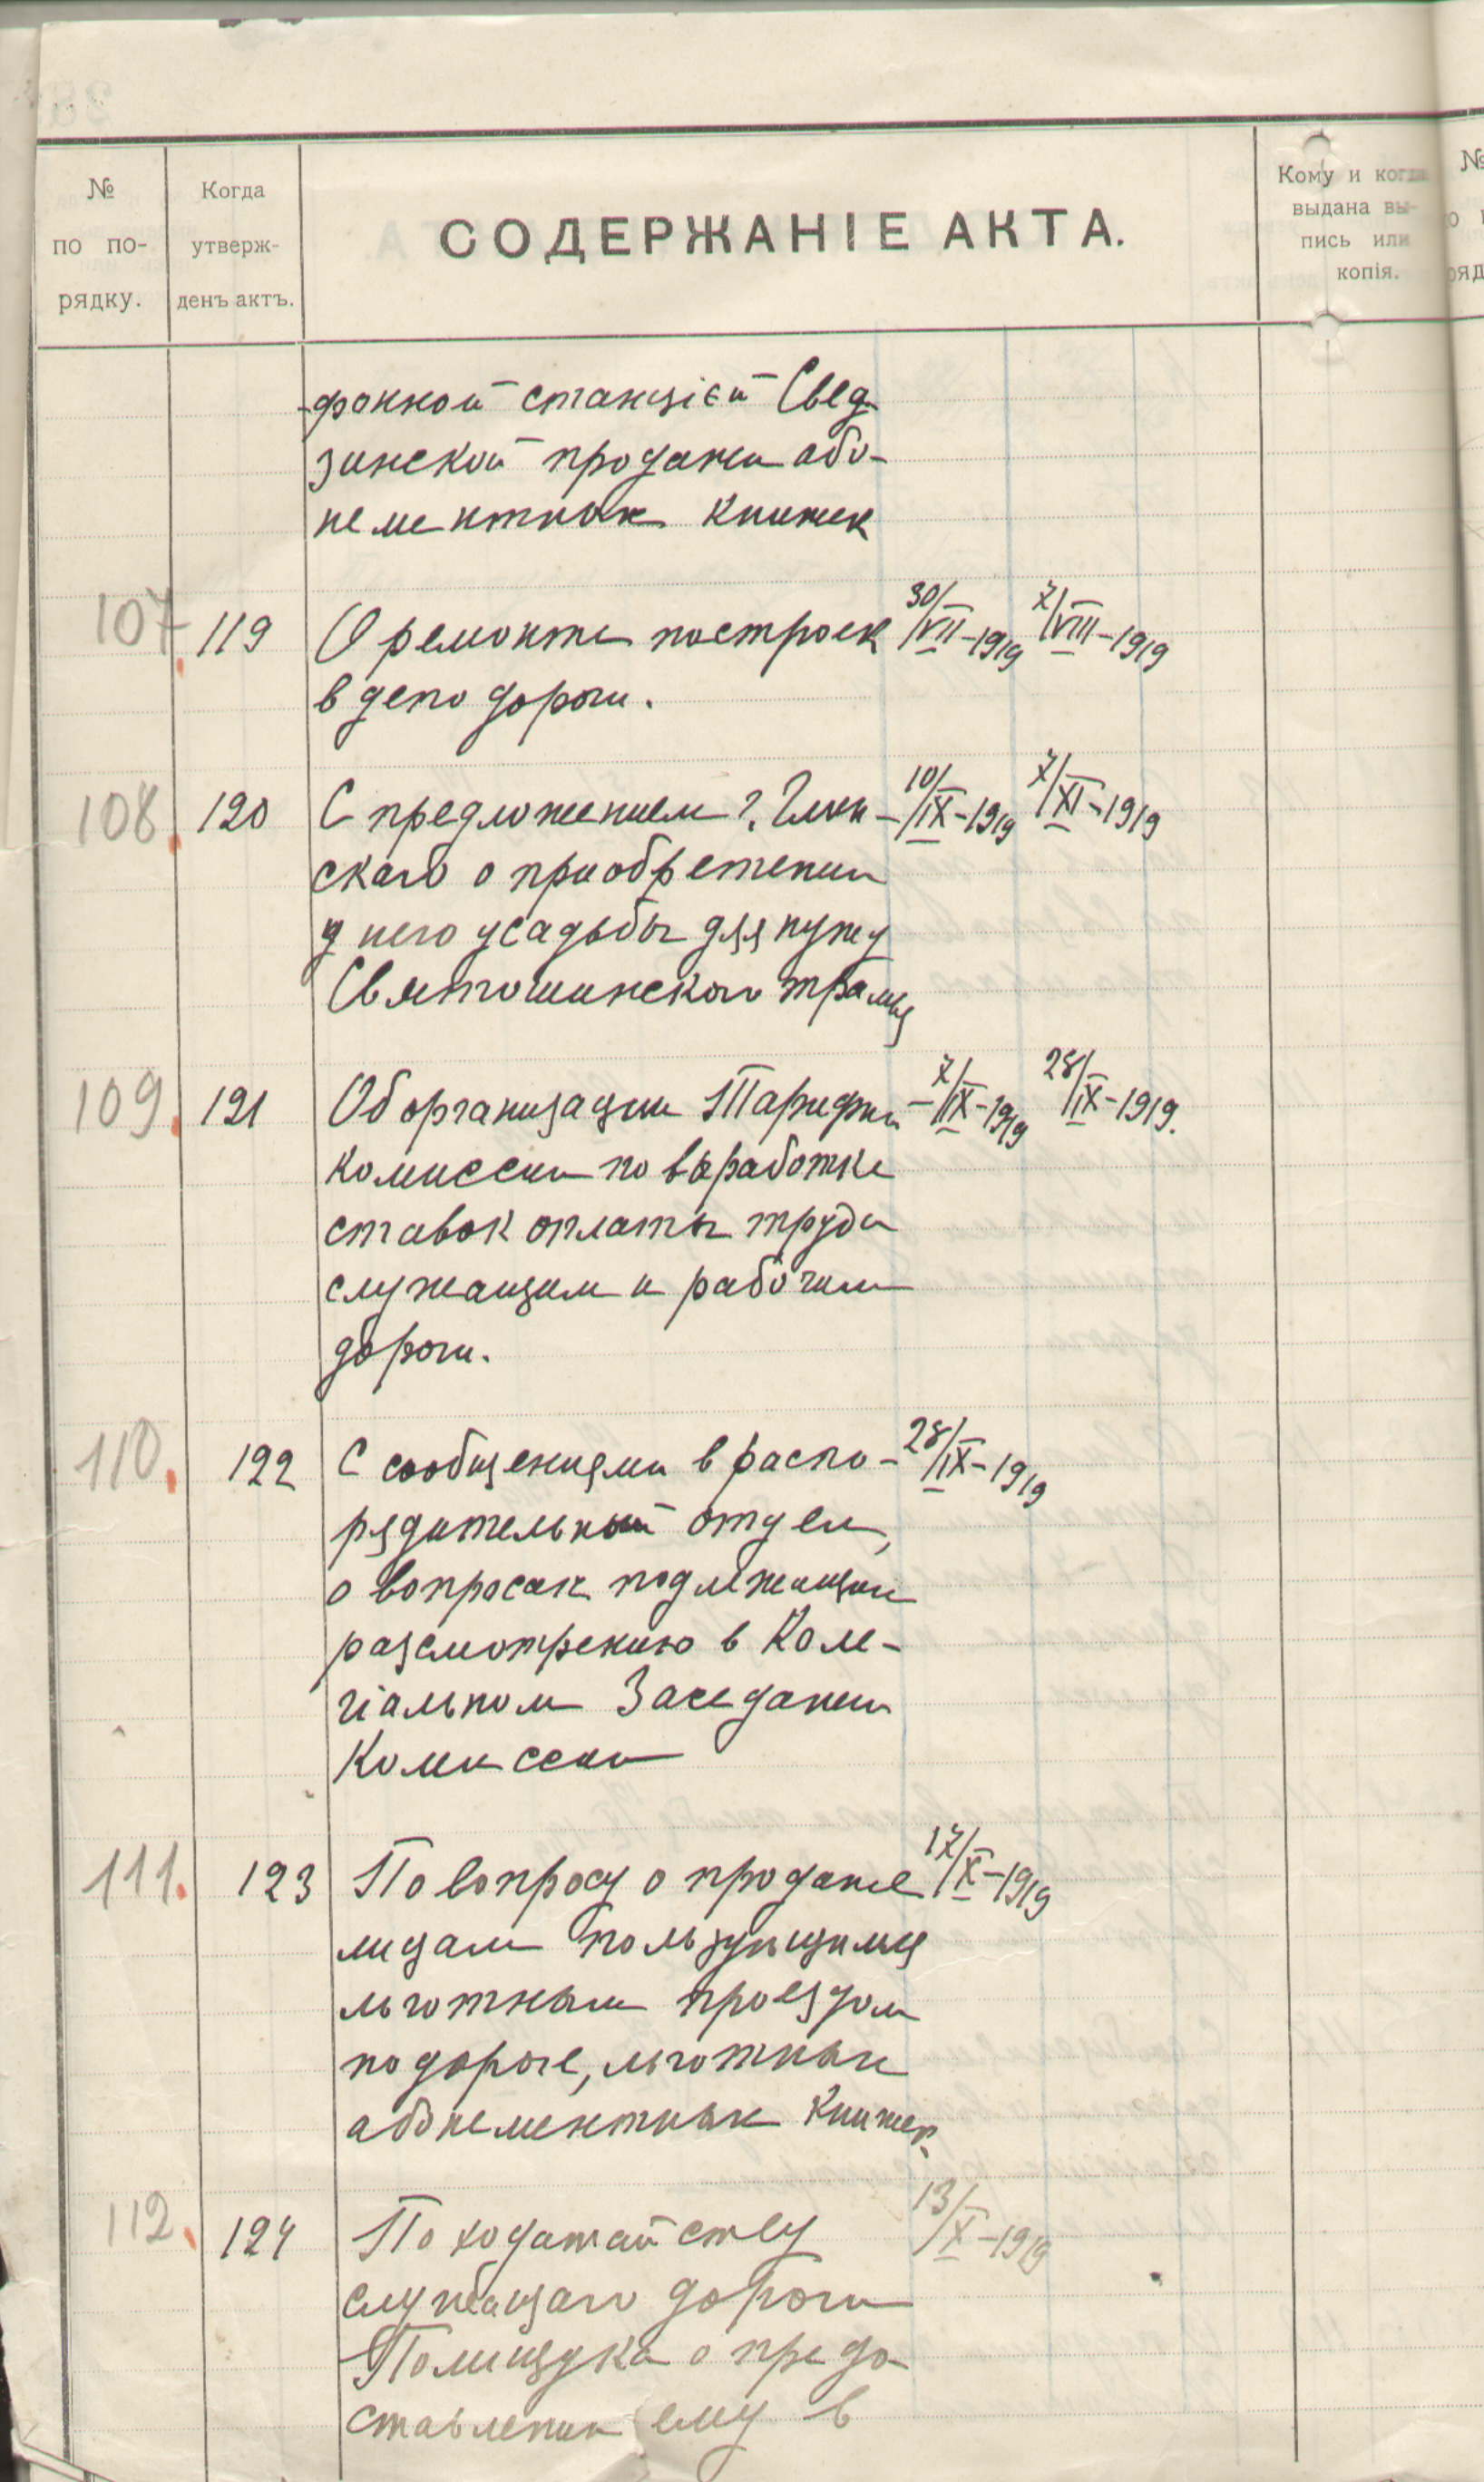 № по порядку.
Когда утвержденъ актъ.
СОДЕРЖАНІЕ АКТА.
Кому и когда выдана выпись или копія.
-фонной станцией
зинской продажи або-
нементных книжек
107 119 О ремонте построек 30/VII-1919 7/VIII-1919
в депо дороги.
108. 120 С предложением г. - 10/IX-1919 7/XI-1919
скаго о приобретении
у него усадьбы для нужд
Святошинского трамвая
109. 121 Об организации Тарифн. - 7/IX-1919 28/IX-1919.
комиссии по выработке
ставок оплаты труда
служащим и рабочим
дороги.
110. 122 С сообщениями в распо- 28/IX-1919
рядительный отдел,
о вопросах подлежащих
разсмотрению в Коле-
гіальном Заседании
Комиссии
111. 123 По вопросу о продаже 17/X-1919
лицам пользующимся
льготным проездом
по дороге, льготных
абонементных книжек
112. 124 По ходатайству 13/X-1919
служащаго дороги
Полищука о предо-
ставлении ему в